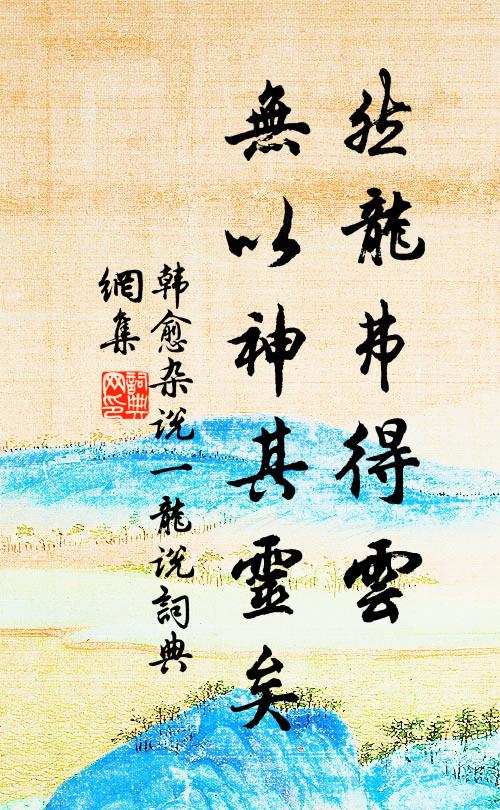 然龍弗得雲
無以神其靈矣
韩愈杂说一龍说詞典
網集
詞典网印